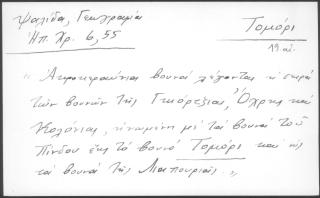 Ψαλίδα, Γεωγραφία
Ἠπ. Χρ. 6, 55
Τομόρι
19 αἰ.
" Ἀκροκεραύνια βουνά λέγονται ἡ σειρά
τῶν βουνῶν τῆς Γκιόρτζιας, Ὄχρης καί
Κολόνιας, ἑνωμένη μέ τά βουνά τοῦ
Πίνδου ἕως τό βουνό Τομόρι καί εἰς
τά βουνά τῆς Λιαπουριᾶς „